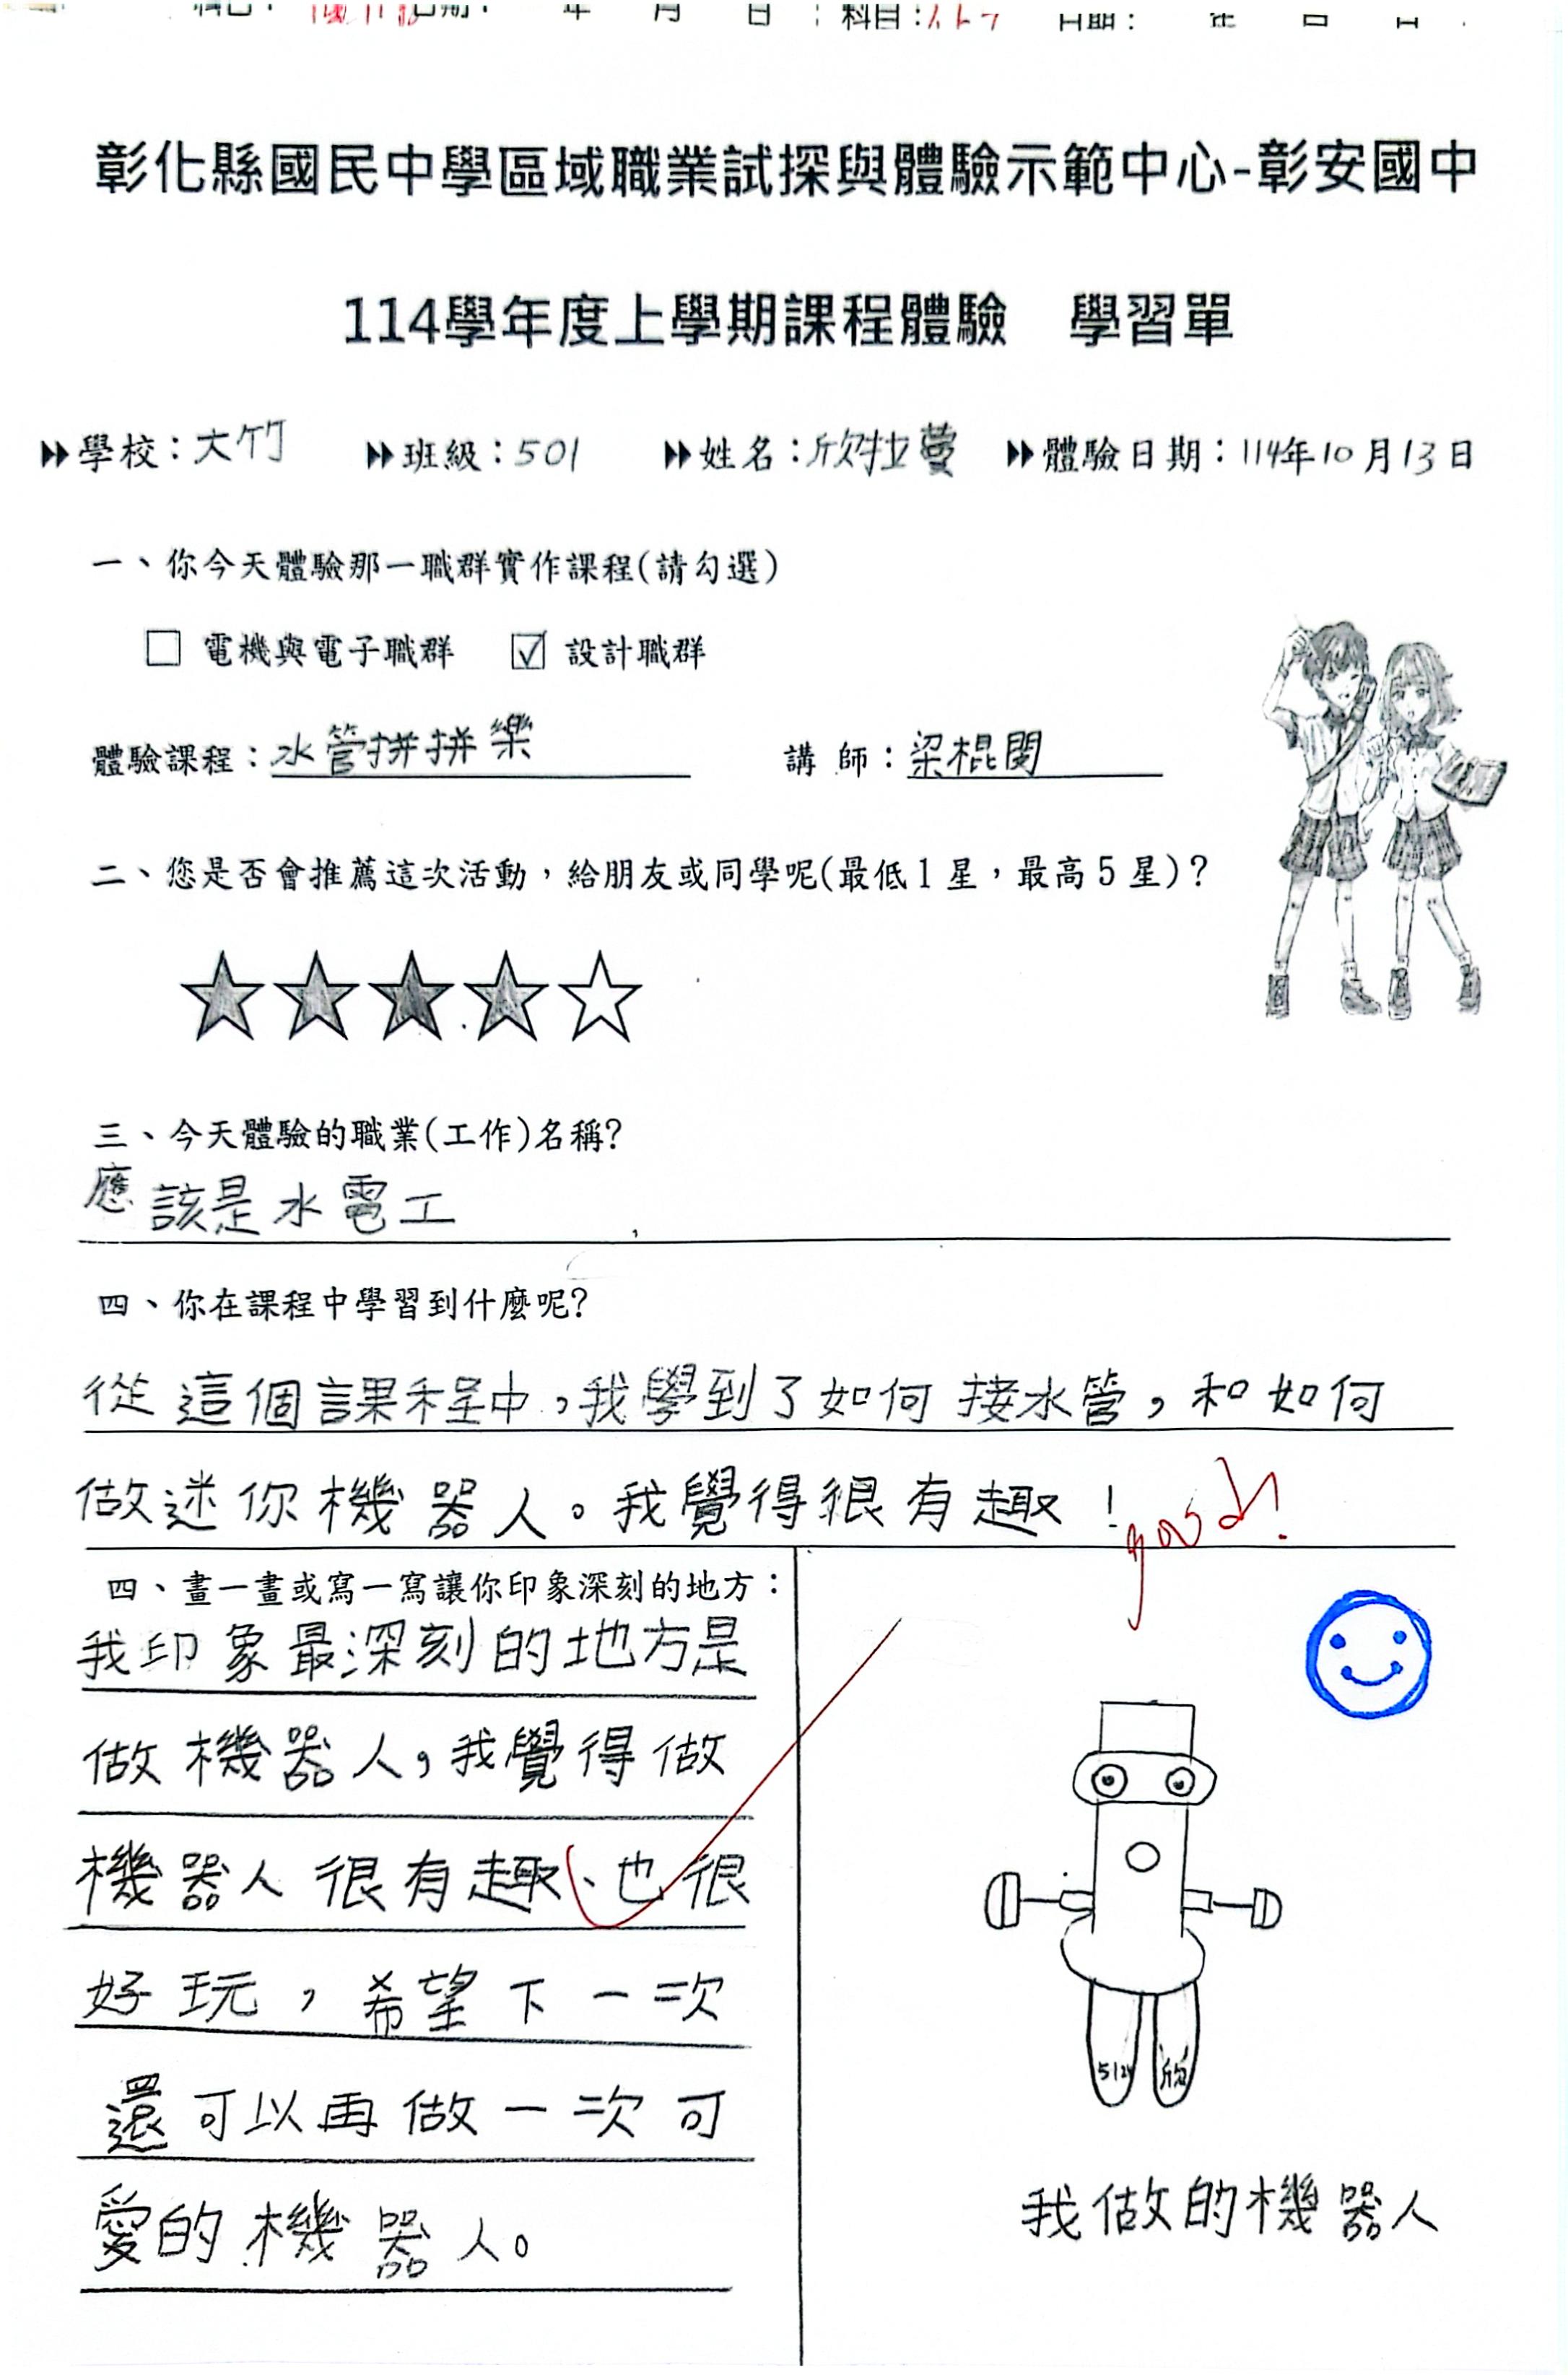 科目:
年 月 日
科目:
日期: 年 日
彰化縣國民中學區域職業試探與體驗示範中心-彰安國中
114學年度上學期課程體驗 學習單
學校:大竹 班級:501 姓名:欣拉蔓 體驗日期:114年10月13日
一、你今天體驗那一職群實作課程(請勾選)
☐ 電機與電子職群 ☑ 設計職群
體驗課程:水管拼拼樂 講 師:梁棍閔
二、您是否會推薦這次活動,給朋友或同學呢(最低1星,最高5星)?
三、今天體驗的職業(工作)名稱?
應該是水電工
四、你在課程中學習到什麼呢?
從這個課程中,我學到了如何接水管,和如何
做迷你機器人。我覺得很有趣!
good!
四、畫一畫或寫一寫讓你印象深刻的地方:
我印象最深刻的地方是
做機器人,我覺得做
機器人很有趣、也很
好玩,希望下一次
還可以再做一次可
愛的機器人。
512 欣
我做的機器人